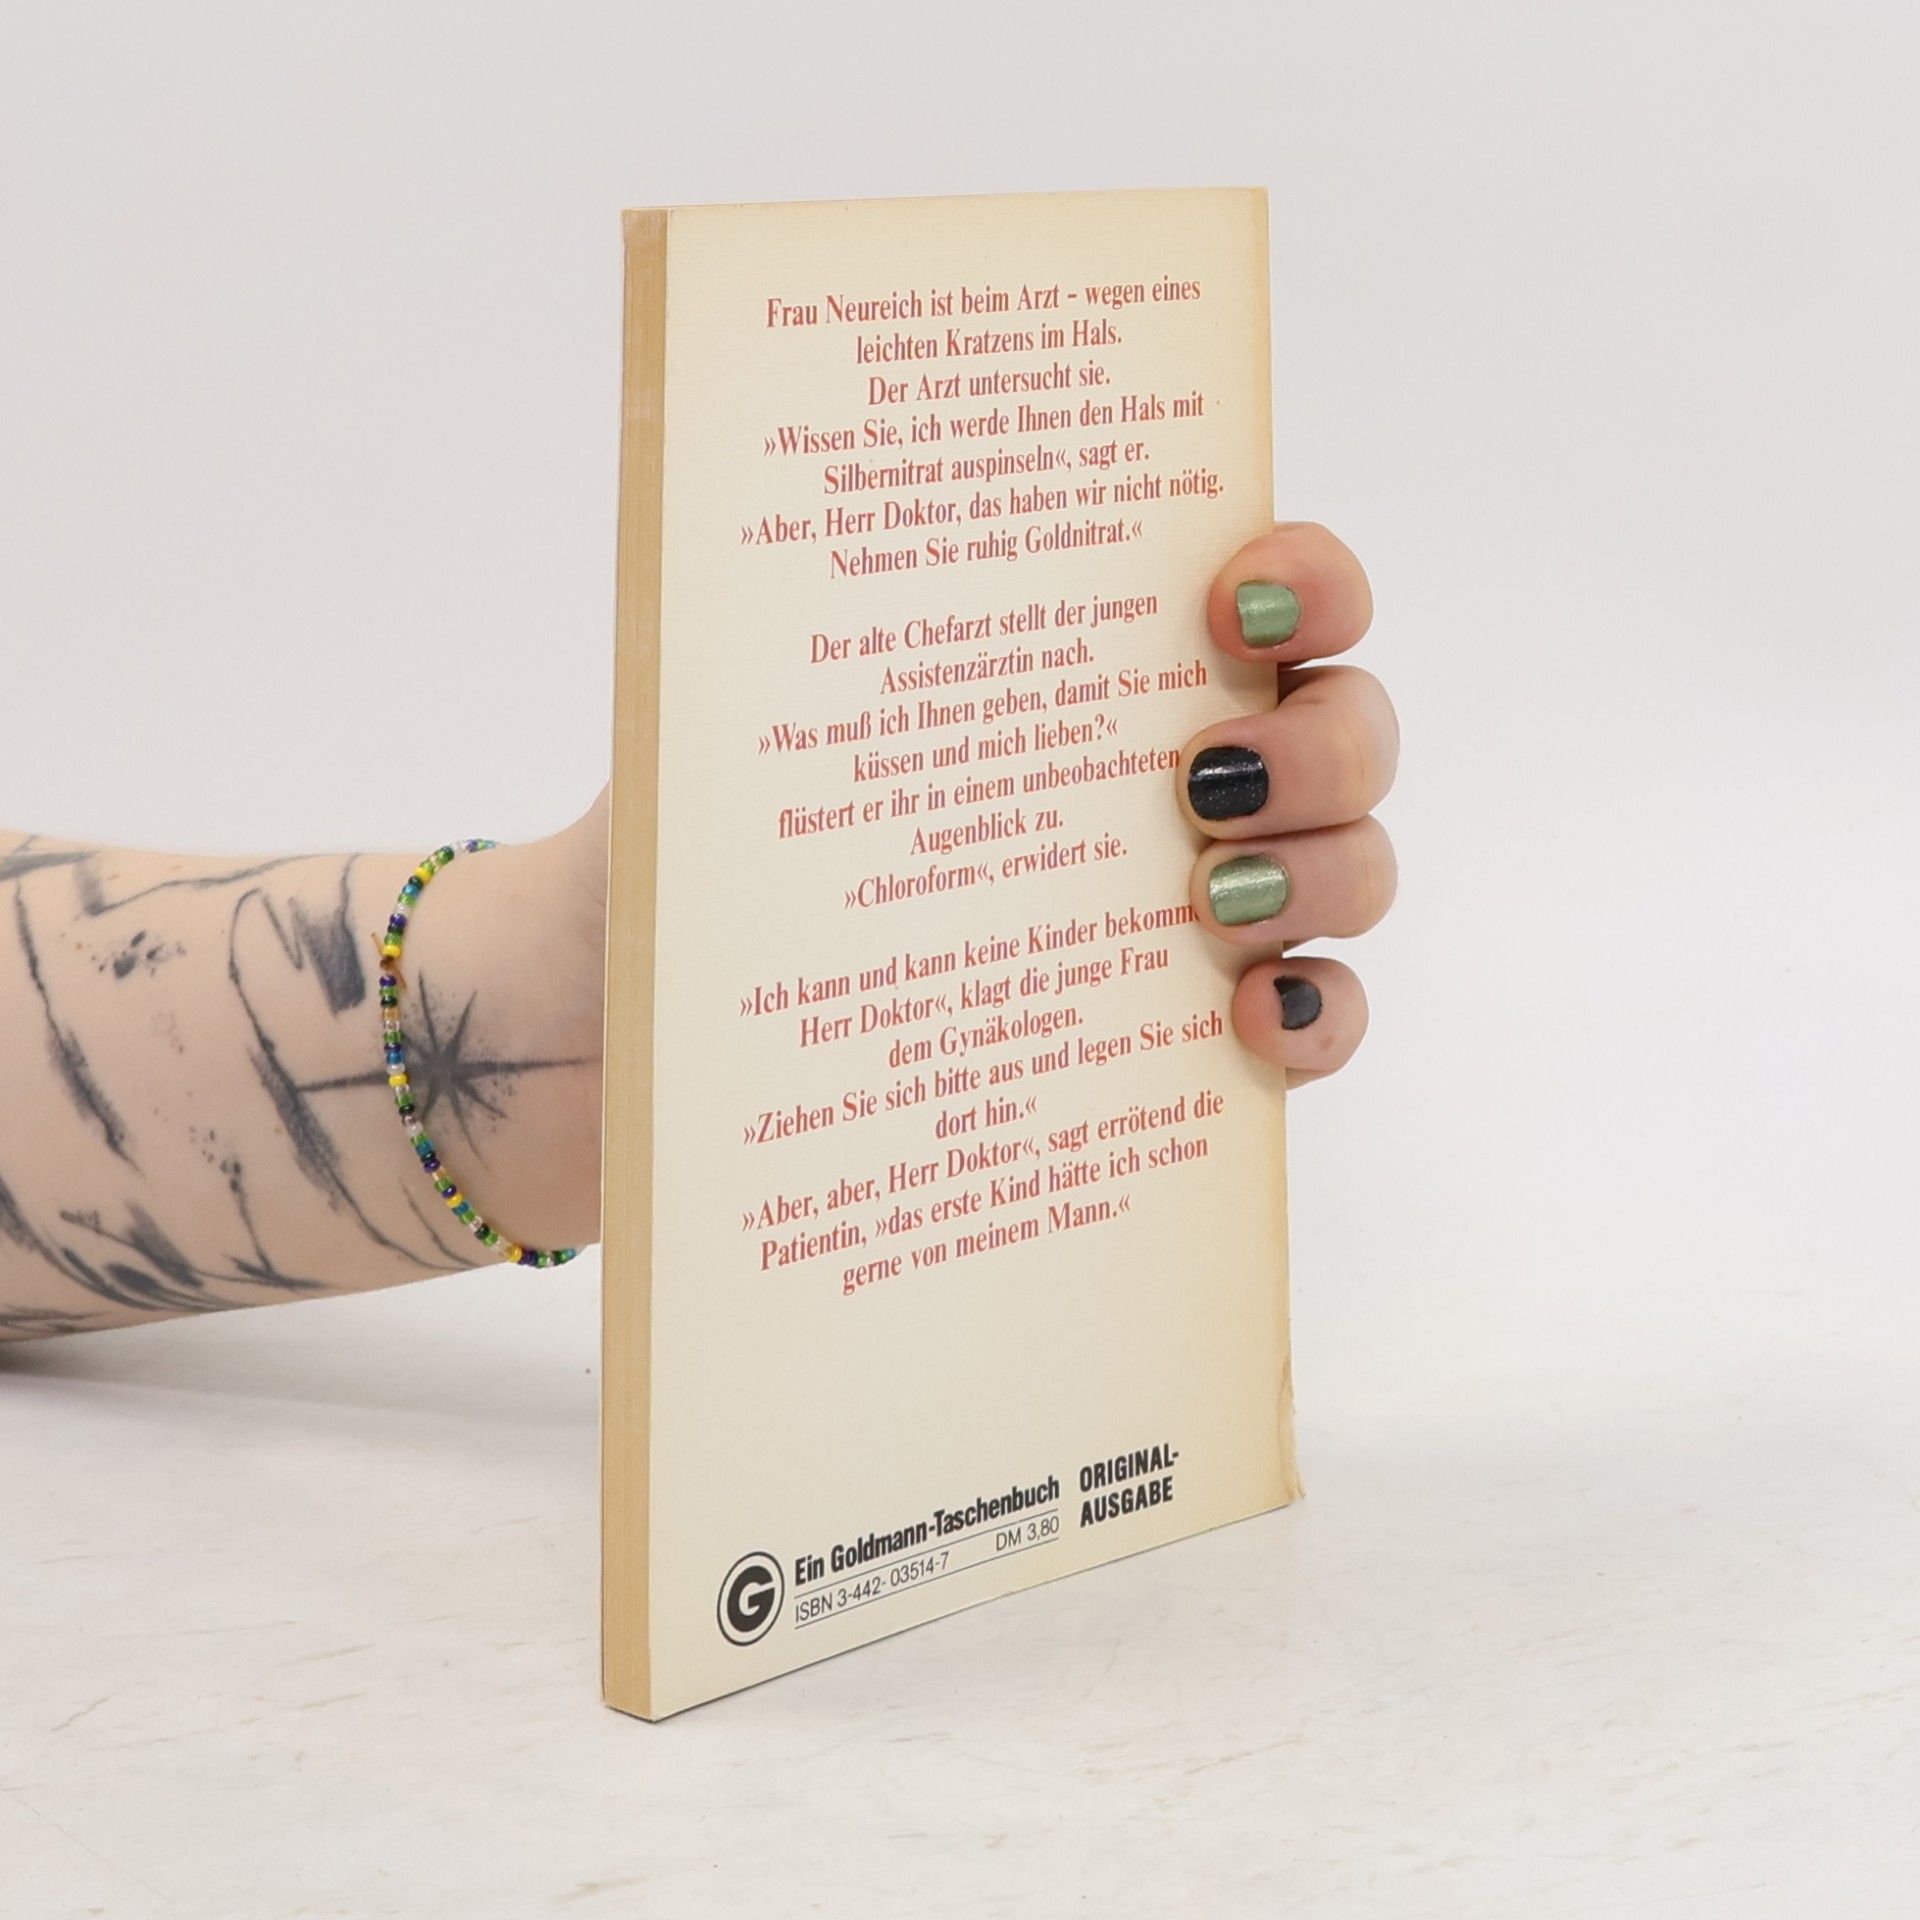 Frau Neureich ist beim Arzt – wegen eines
leichten Kratzens im Hals.
Der Arzt untersucht sie.
»Wissen Sie, ich werde Ihnen den Hals mit
Silbernitrat auspinseln«, sagt er.
»Aber, Herr Doktor, das haben wir nicht nötig.
Nehmen Sie ruhig Goldnitrat.«
Der alte Chefarzt stellt der jungen
Assistenzärztin nach.
»Was muß ich Ihnen geben, damit Sie mich
küssen und mich lieben?«
flüstert er ihr in einem unbeobachteten
Augenblick zu.
»Chloroform«, erwidert sie.
»Ich kann und kann keine Kinder
Herr Doktor«, klagt die junge Frau
dem Gynäkologen.
»Ziehen Sie sich bitte aus und legen Sie sich
dort hin.«
»Aber, aber, Herr Doktor«, sagt errötend die
Patientin, »das erste Kind hätte ich schon
gerne von meinem Mann.«
G
Ein Goldmann-Taschenbuch
ISBN 3-442-03514-7 DM 3,80
ORIGINAL-
AUSGABE